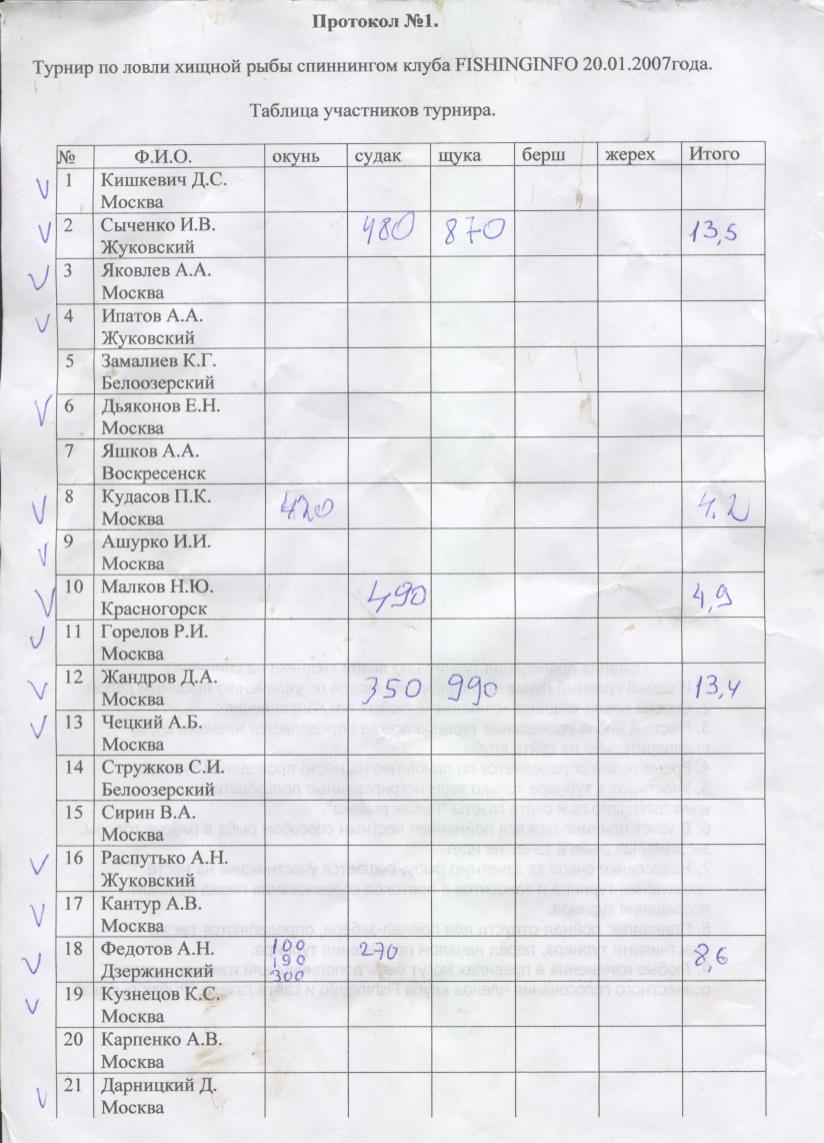 Протокол №1.
Турнир по ловли хищной рыбы спиннингом клуба FISHINGINFO 20.01.2007года.
Таблица участников турнира.
№ Ф.И.О. окунь судак щука берш жерех Итого
1 Кишкевич Д.С.
Москва
2 Сыченко И.В. 480 870 13,5
Жуковский
3 Яковлев А.А.
Москва
4 Ипатов А.А.
Жуковский
5 Замалиев К.Г.
Белоозерский
6 Дьяконов Е.Н.
Москва
7 Яшков А.А.
Воскресенск
8 Кудасов П.К. 420 4.2
Москва
9 Ашурко И.И.
Москва
10 Малков Н.Ю. 490 4,9
Красногорск
11 Горелов Р.И.
Москва
12 Жандров Д.А. 350 990 13,4
Москва
13 Чецкий А.Б.
Москва
14 Стружков С.И.
Белоозерский
15 Сирин В.А.
Москва
16 Распутько А.Н.
Жуковский
17 Кантур А.В.
Москва
18 Федотов А.Н. 100 270 8,6
190
Дзержинский 300
19 Кузнецов К.С.
Москва
20 Карпенко А.В.
Москва
21 Дарницкий Д.
Москва